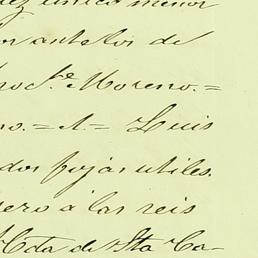 ez única menor
or antelos de
José Moreno.=
no.=A.= Luis
dos fojas utiles.
ero á las seis
Hda de Sta Ca-